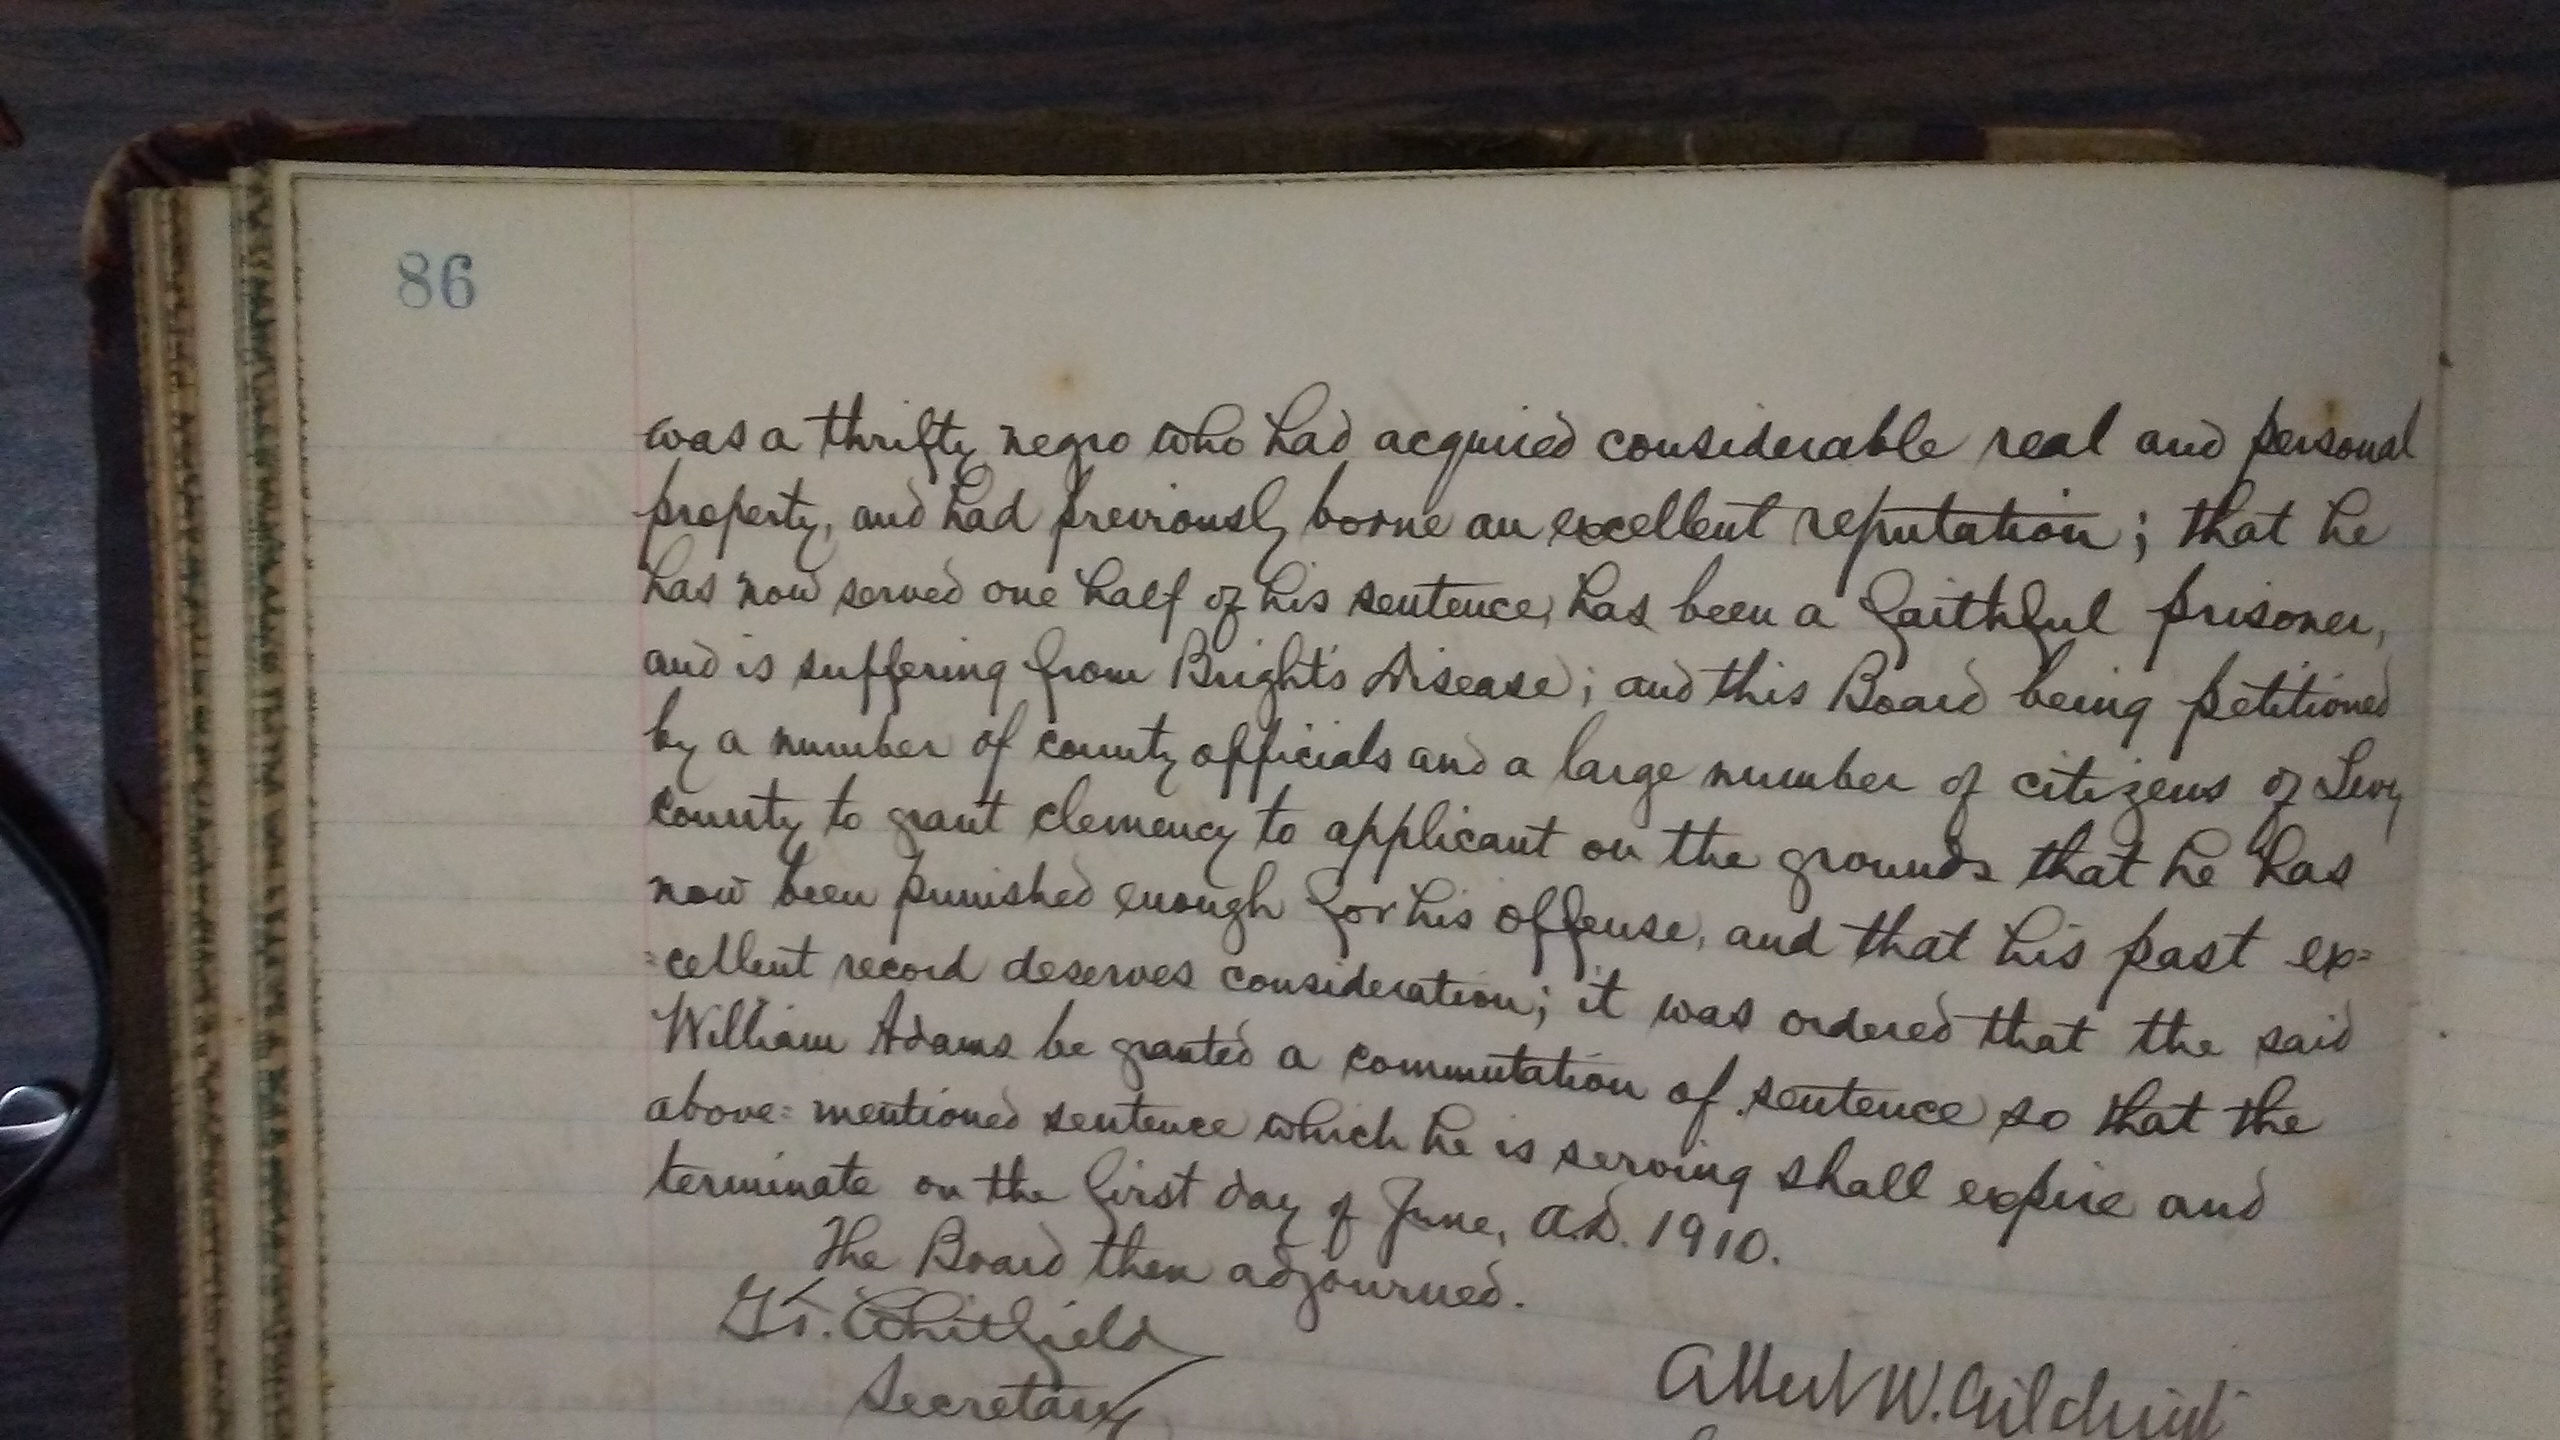 86
was a thrifty negro who had acquired considerable real and personal
property, and had previously borne an excellent reputation; that he
has now served one half of his sentence, has been a faithful prisoner,
and is suffering from Bright's Disease; and this Board being petitioned
by a number of county officials and a large number of citizens of Levy
county to grant clemency to applicant on the grounds that he has
now been punished enough for his offense, and that his past ex=
=cellent record deserves consideration; it was ordered that the said
William Adams be granted a commutation of sentence so that the
above=mentioned sentence which he is serving shall expire and
terminate on the first day of June, A.D. 1910.
The Board then adjourned.
G.T. Whitfield
Secretary
Albert W. Gilchrist